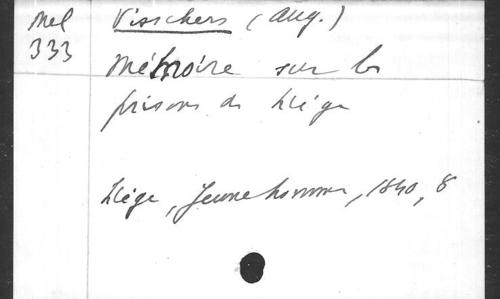 Mel Visschers (Aug.)
333
Mémoire sur les
prisons de Liége
Liége, Jeunehomme, 1840, 8